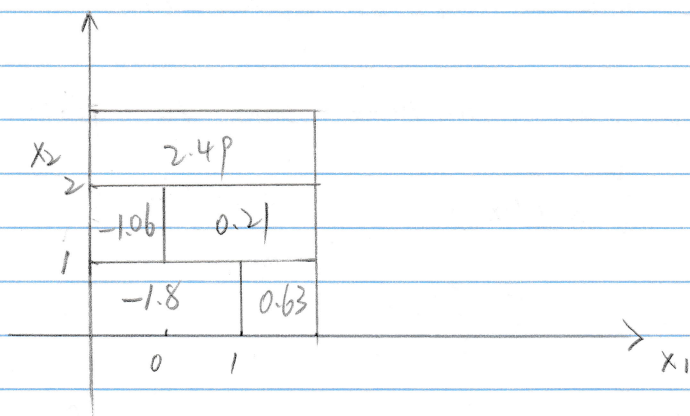 X2
2.49
2
-1.06 0.21
1
-1.8 0.63
0 1
X1